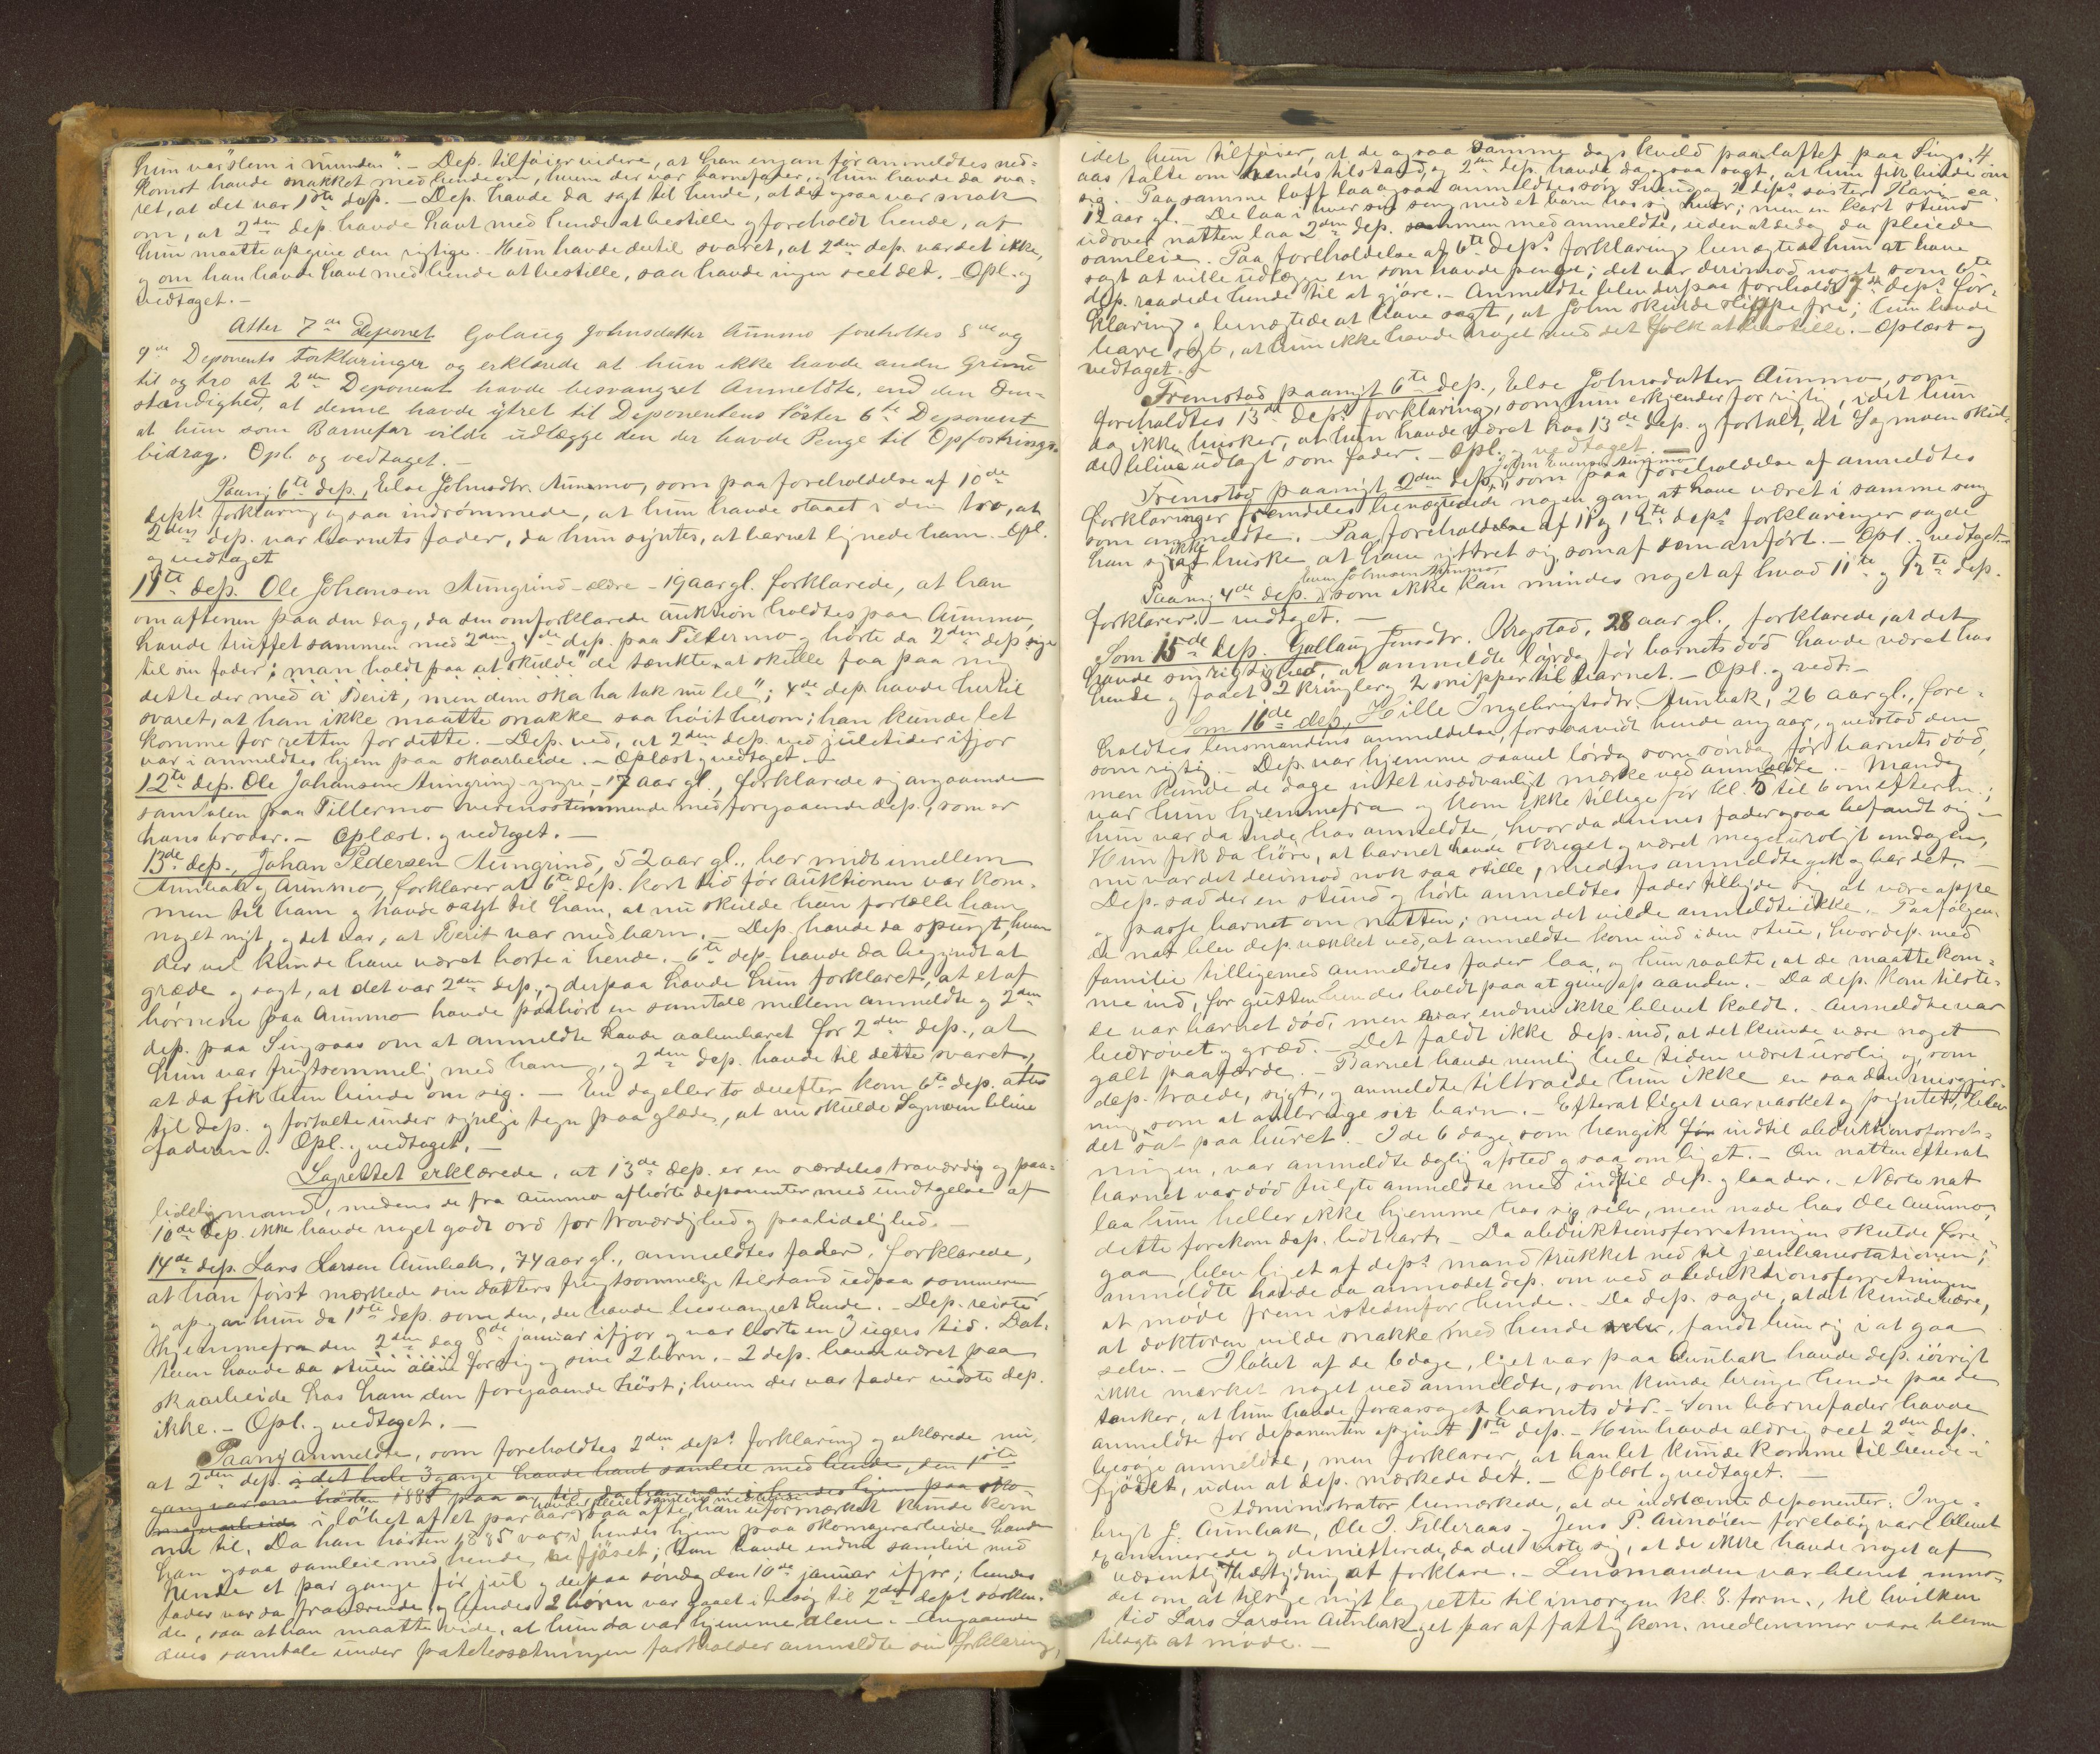 hun var "slem i munden". – Dep. tilføier videre, at han engan før anmeldtes ned=
komst havde snakket med hende om, hvem der var barnefader, og hun havde da sva=
ret, at det var 1ste dep. – Dep. havde da sagt til hende, at det ogsaa var snak
om, at 2den dep. havde havt med hende at bestille og foreholdt hende, at
hun maatte opgive den rigtige. Hun havde dertil svaret, at 2den dep. var det ikke,
og om han havde havt med hende at bestille, saa havde ingen seet det. – Opl. og
vedtaget. –
Atter 7de Deponent Golaug Johnsdatter Aunmo foreholtes 5te og
9de Deponents Forklaringer og erklærede at hun ikke havde anden Grund
til og tro at 2den Deponent havde besvangret Anmeldte, end den Om=
stændighed, at denne havde ytret til Deponentens Søster 6te Deponent
at hun som Barnefar vilde udlægge den der havde Penge til Opfostrings-
bidrag. Opl. og vedtaget. –
Paany 6te dep., Else Johnsdtr. Aunmo, som paa foreholdelse af 10de
deps. forklaring ogsaa indrømmede, at hun havde staaet i den tro, at
2den dep. var barnets fader, da hun syntes, at barnet lignede ham. – Opl.
og vedtaget
11te dep. Ole Johansen Aungrind – ældre – 19 aar gl. forklarede, at han
om aftenen paa den dag, da den omforklarede auktion holdtes paa Aunmo,
havde truffet sammen med 2den og 4de dep. paa Tillermo og hørte da 2den dep. sige
til sin fader: "man holdt paa at skulde" de tænkte at skulle faa paa mig
dette der med a' Berit, men dem ska ha tak nu lel"; 4de dep. havde hertil
svaret, at han ikke maatte snakke saa høit herom; han kunde let
komme for retten for dette. – Dep. ved, at 2den dep. ved juletider ifjor
var i anmeldtes hjem paa skoarbeide. – Oplæst og vedtaget. –
12te dep. Ole Johansen Aungrind – yngre – 17 aar gl., forklarede sig angaaende
samtalen paa Tillermo overensstemmende med foregaaende dep., som er
hans broder. – Oplæst og vedtaget. –
13de dep., Johan Pedersen Aungrind, 52 aar gl., bor midt imellem
Aunbak og Aunmo, forklarer at 6te dep. kort tid før auktionen var kom=
men til ham og havde sagt til ham, at nu skulde hun fortælle ham
noget nyt, og det var, at Berit var med barn. – Dep. havde da spurgt, hvem
der vel kunde have været borte i hende. – 6te dep. havde da begyndt at
græde og sagt, at det var 2den dep., og derpaa havde hun forklaret, at et af
børnene paa Aunmo havde paahørt en samtale mellem anmeldte og 2den
dep. paa Singsaas om at anmeldte havde aabenbaret for 2den dep., at
hun var frugtsommelig med ham, og 2den dep. havde til dette svaret,
at da fik hun binde om sig. – En dag eller to derefter kom 6te dep. atter
til dep. og fortalte under synlige tegn paa glæde, at nu skulde Sagmoen blive
faderen. Opl. og vedtaget. –
Lagrettet erklærede, at 13de dep. er en særdeles troværdig og paa=
lidelig mand, medens de fra Aunmo afhørte deponenter med undtagelse af
10de dep. ikke havde noget godt ord for troværdighed og paalidelighed. –
14de dep. Lars Larsen Aunbak, 74 aar gl., anmeldtes fader, forklarede,
at han først mærkede sin datters frugtsommelige tilstand udpaa sommeren
og opgav hun da 1ste dep. som den, der havde besvangret hende. – Dep. reiste
hjemmefra den 2den dag januar ifjor og var borte en 3 ugers tid. Dat=
teren havde da stuen alene for sig og sine 2 børn. – 2 dep. havde været paa
skoarbeide hos ham den foregaaende høst; hvem der var fader vidste dep.
ikke. – Opl. og vedtaget. –
Paany anmeldte, som foreholdtes 2den deps. forklaring og erklærede nu,
at 2den dep. i det hele 3 gange havde havt samleie med hende, den 1ste
gang var om høsten 1885 paa en tid, da han var i hendes hjem paa sko=
magerarbeide i løbet af et par aar havde pleiet samleie med hende saa ofte, han uformærket kunde kom
me til. Da han høsten 1885 var i hendes hjem paa skomagerarbeide havde
han ogsaa samleie med hende i fjøset; han havde endnu samleie med
hende et par gange før jul og derpaa søndag den 10de januar ifjor; hendes
fader var da fraværende og hendes 2 børn var gaaet i besøg til 2den deps. søsken=
de, saa at han maatte vide, at hun da var hjemme alene. – Angaaende
deres samtale under potetesoptagningen fastholder anmeldte sin forklaring,
4
idet hun tilføier, at de ogsaa samme dags kveld paa loftet paa Sings=
aas talte om hendes tilstand, og 2den dep. havde da ogsaa sagt, at hun fik binde om
sig. Paa samme loft laa ogsaa anmeldtes søn Svend og 2 deps. søster Kari ca
12 aar gl. De laa i hver sin seng med et barn hos sig hver; men en kort stund
udover natten laa 2den dep. sammen med anmeldte, uden at de dog da pleiede
samleie. Paa foreholdelse af 6te deps. forklaring benegtede hun at have
sagt at ville udlægge en som havde penge; det var derimod noget som 6te
dep. raadede hende til at gjøre. – Anmeldte blev derpaa foreholdt 7de deps. for=
klaring og benegtede at have sagt, at John skulde slippe fri; hun havde
bare sagt, at hun ikke havde noget med det folk at bestille. – Oplæst og
vedtaget. –
Fremstod paanyt 6te dep., Else Johnsdatter Aunmo, som
foreholdtes 13de deps. forklaring, som hun erkjender for rigtig, idet hun
dog ikke husker, at hun havde været hos 13de dep. og fortalt, at Sagmoen skul=
de blive udlagt som fader. – Opl. og vedtaget.
Fremstod paanyt 2den dep., John Evensen Aunmo, som paa foreholdelse af anmeldtes
forklaringer fremdeles benegtede nogen gang at have været i samme seng
som anmeldte. – Paa foreholdelse af 11 og 12te deps. forklaringer sagde
han sig ikke at huske at have yttret sig som af dem anført. – Opl. og vedtaget. –
Paany 4de dep. Even Johnsen Aunmo som ikke kan mindes noget af hvad 11te og 12te dep.
forklarer. – vedtaget. –
Som 15de dep. Gollaug Jonsdtr. Krogstad, 28 aar gl., forklarede, at det
havde sin rigtighed, at anmeldte lørdag før barnets død havde været hos
hende og faaet 2 kringler og 2 snipper til barnet. – Opl. og vedt. –
Som 16de dep. Hille Ingebrigtsdtr. Aunbak, 26 aar gl., fore=
holdtes lensmandens anmeldelse, forsaavidt hende angaar, og vedstod den
som rigtig. – Dep. var hjemme saavel lørdag som søndag før barnets død,
men kunde de dage intet usædvanligt mærke ved anmeldte. – Mandag
var hun hjemmefra og kom ikke tilbage før kl. 5 til 6 om efterm.;
hun var da inde hos anmeldte, hvor da dennes fader ogsaa befandt sig. –
Hun fik da høre, at barnet havde skreget og været meget uroligt om dagen,
nu var det derimod nok saa stille, medens anmeldte gik og bar det. –
Dep. sad der en stund og hørte anmeldtes fader tilbyde sig at være oppe
og passe barnet om natten; men det vilde anmeldte ikke. – Paafølgen=
de nat blev dep. vækket ved, at anmeldte kom ind i den stue, hvor dep. med
familie tilligemed anmeldtes fader laa, og hun raabte, at de maatte kom=
me ind, for gutten hendes holdt paa at give op aanden. – Da dep. kom tilste=
de var barnet død, men var endnu ikke blevet koldt. – Anmeldte var
bedrøvet og græd. – Det faldt ikke dep. ind, at det kunde være noget
galt paafærde. – Barnet havde nemlig hele tiden været urolig og, som
dep. troede, sygt, og anmeldte tiltroede hun ikke en saadan misgjer=
ning som at ombringe sit barn. – Efterat liget var vasket og pyntet, blev
det sat paa buret. – I de 6 dage, som hengik før indtil obduktionsforret=
ningen, var anmeldte daglig afsted og saa om liget. – Om natten efterat
barnet var død fulgte anmeldte med ind til dep. og laa der. – Næste nat
laa hun heller ikke hjemme hos sig selv, men nede hos Ole Aunmo,
dette forekom dep. lidt rart. – Da obduktionsforretningen skulde fore=
gaa, blev liget af deps. mand trukket ned til jernbanestationen;
anmeldte havde da anmodet dep. om ved obduktionsforretningen
at møde frem istedenfor hende. – Da dep. sagde, at det kunde være,
at doktoren vilde snakke med hende selv, fandt hun sig i at gaa
selv. – I løbet af de 6 dage, liget var paa Aunbak havde dep. iøvrigt
ikke mærket noget ved anmeldte, som kunde bringe hende paa de
tanker, at hun havde foraarsaget barnets død. – Som barnefader havde
anmeldte for deponenten opgivet 1ste dep. – Hun havde aldrig seet 2den dep.
besøge anmeldte, men forklarer, at han let kunde komme til hende i
fjøset, uden at dep. mærkede det. – Oplæst og vedtaget. –
Administrator bemærkede, at de indstævnte deponenter: Inge=
brigt J. Aunbak, Ole J. Tilleraas og Jens P. Aunøien foreløbig var blevet
examinerede og demitterede, da det viste sig, at de ikke havde noget af
væsentlig betydning at forklare. – Lensmanden var blevet anmo=
det om at tilsige nyt lagrette til imorgen kl. 8 form., til hvilken
tid Lars Larsen Aunbak og et par af fattigkom. medlemmer vare blevne
tilsagte at møde. –